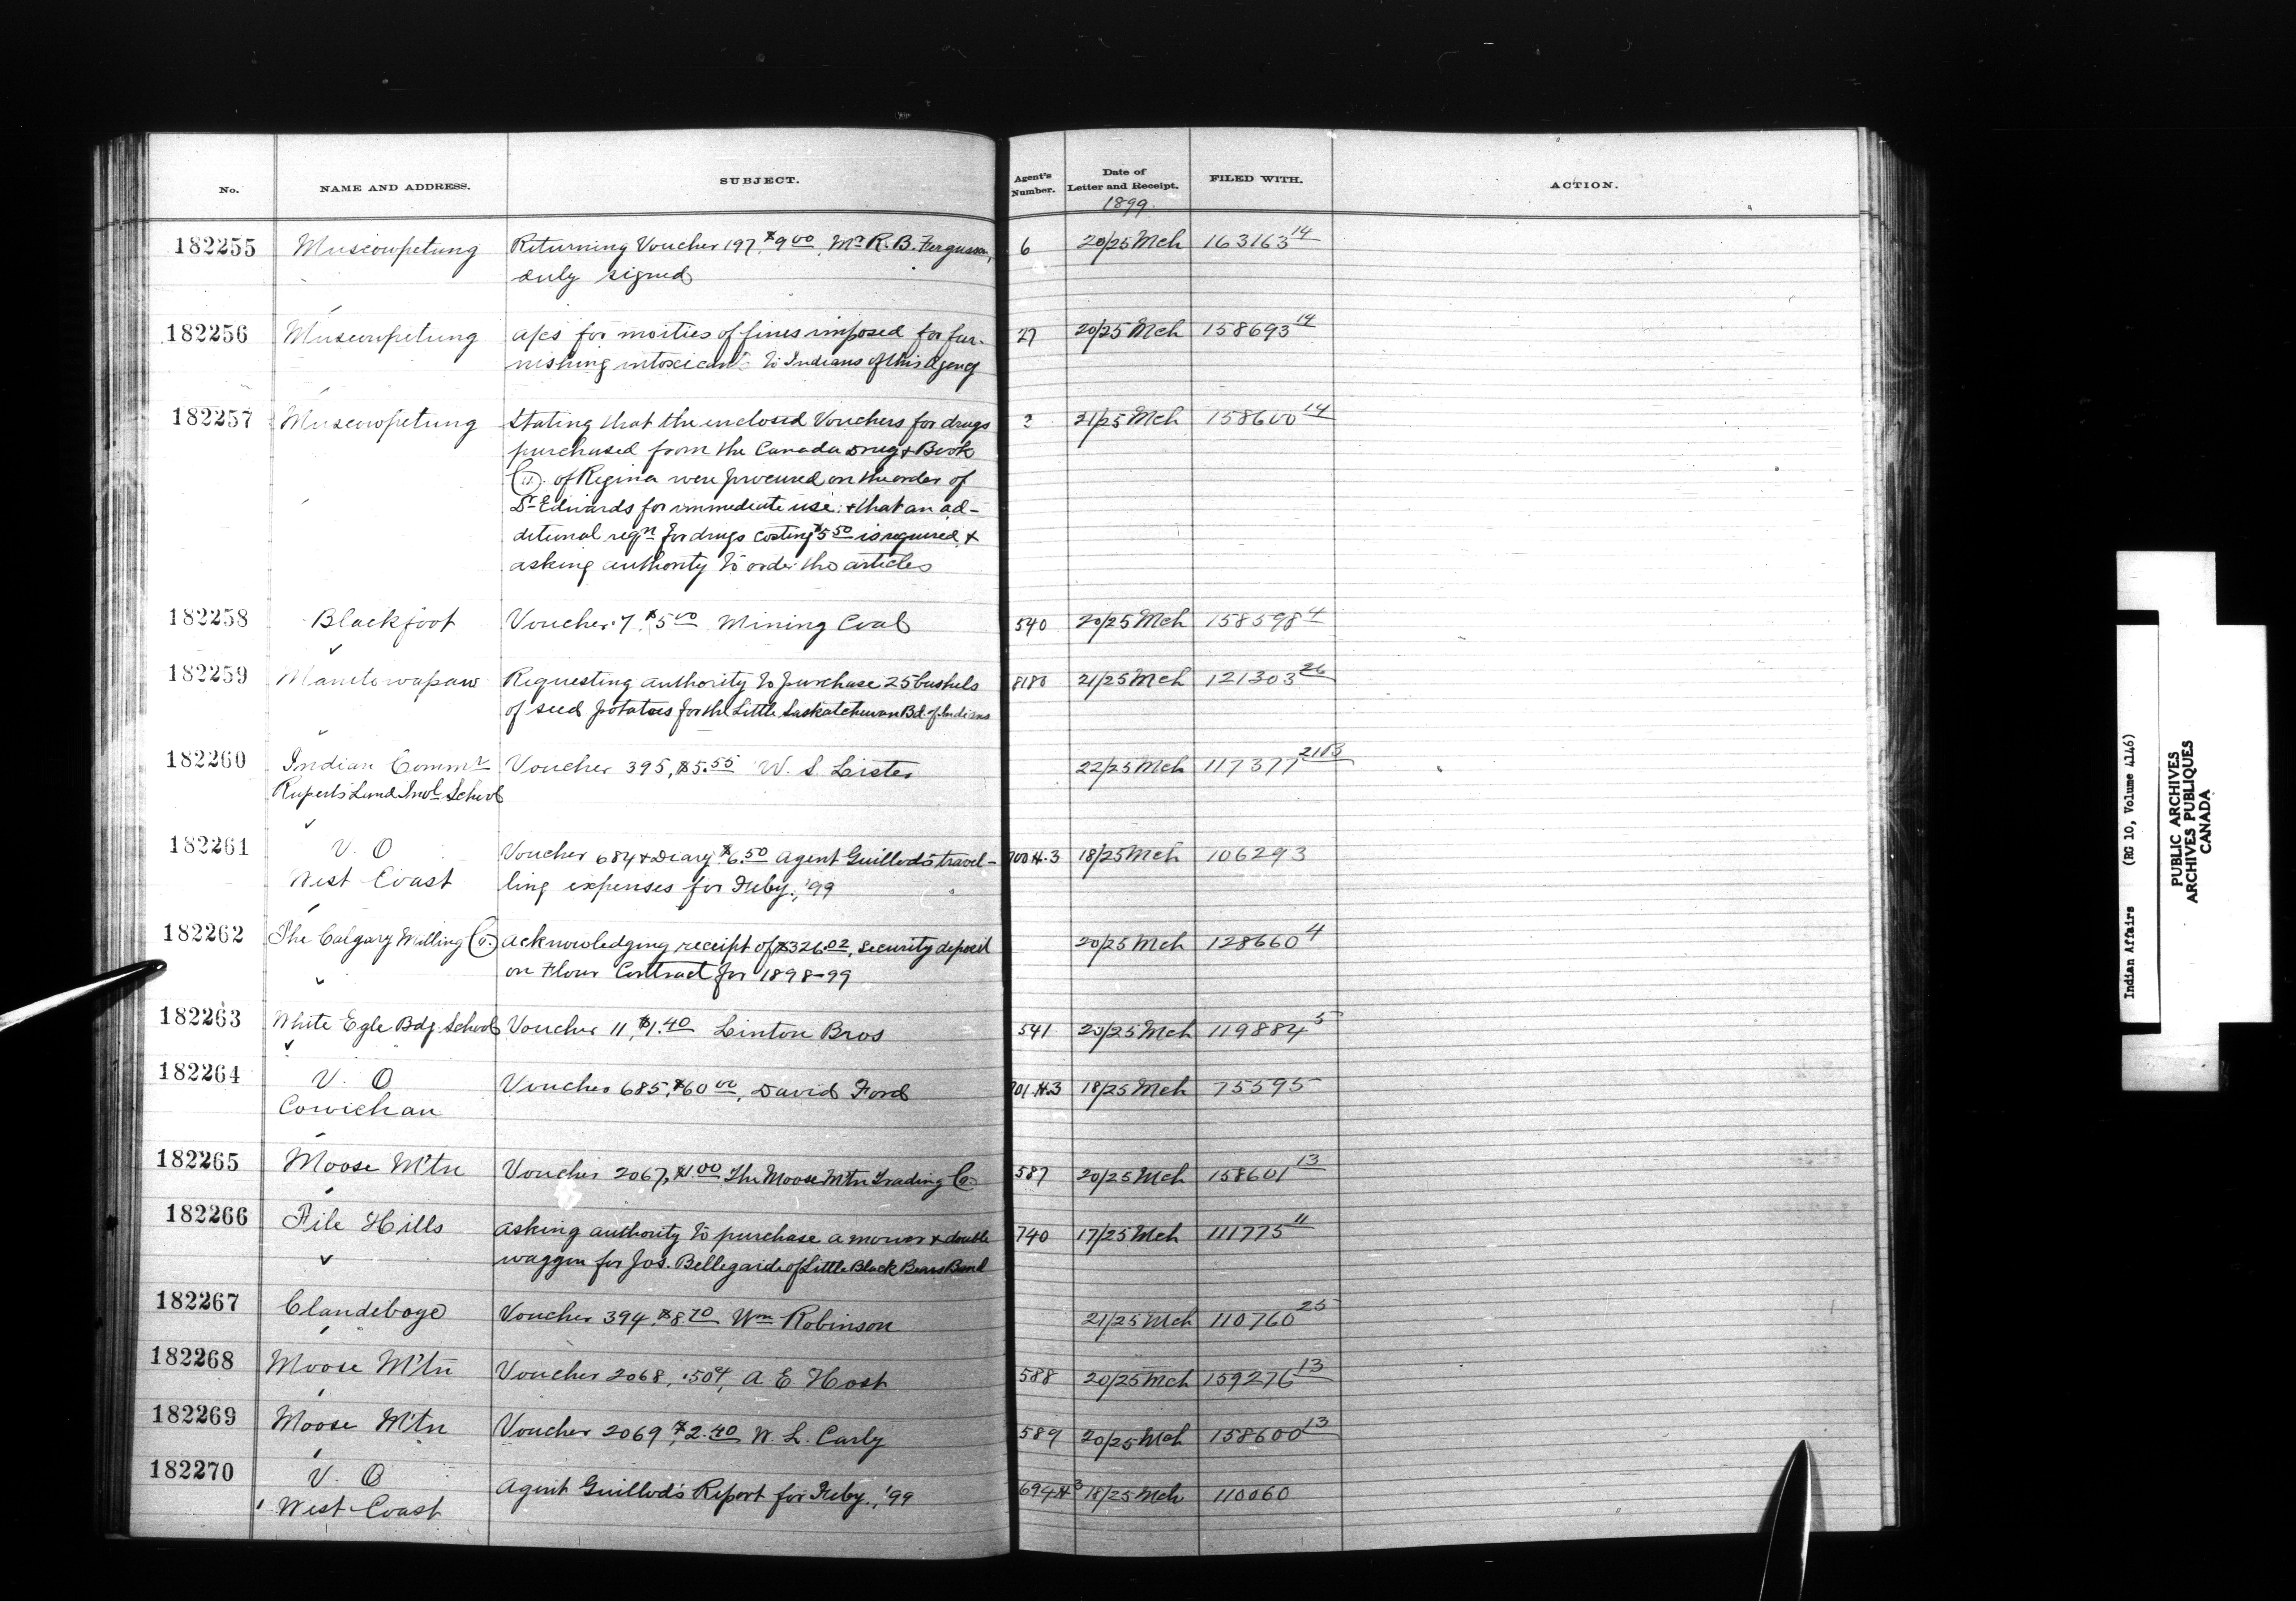 No. NAME AND ADDRESS. SUBJECT. Agent's Number. Date of Letter and Receipt. FILED WITH. ACTION.
1899.
182255 Muscowpetung Returning Voucher 197, $9.00, Mr. R. B. Ferguson, 6 20/25 Mch 163163 14
duly signed
182256 Muscowpetung a/cs for moities of fines imposed for fur- 27 20/25 Mch 158693 14
nishing intoxicants to Indians of this Agency
182257 Muscowpetung Stating that the enclosed Vouchers for drugs 21/25 Mch 158600 14
purchased from the Canada Drug & Book
Co. of Regina were procured on the order of
Dr Edwards for immediate use. & that an ad-
ditional reqn for drugs costing $5.50 is required, &
asking authority to order the articles
182258 Blackfoot Voucher 7 $5.00 Mining Coal 540 20/25 Mch 158598 4
182259 Manitowapaw Requesting authority to purchase 25 bushels 8183 21/25 Mch 121303 26
of seed potatoes for the Little Saskatchewan Bd. of Indians
182260 Indian Commr Voucher 395, $5.55 W. S. Lister 22/25 Mch 117377 21B
Ruperts Land Indl School
182261 V. O Voucher 684 & Diary $6.50 Agent Guillod's travel- 700 H.3 18/25 Mch 106293
West Coast ling expenses for Feby., '99
182262 The Calgary Milling Co. acknowledging receipt of $326.02, security deposit 20/25 Mch 128660 4
on Flour Contract for 1898-99
182263 White Egle Bdg. School Voucher 11, $1.40 Linton Bros 541 20/25 Mch 119884 5
182264 V. O Voucher 685, $60.00, David Ford 701 H.3 18/25 Mch 75595
Cowichan
182265 Moose M'tn Voucher 2067, $1.00 The Moose Mtn Trading Co. 587 20/25 Mch 158601 13
182266 File Hills asking authority to purchase a mower & double 740 17/25 Mch 111775 11
waggon for Jos. Bellegarde of Little Black Bears Band
182267 Clandeboye Voucher 394, $8.70 Wm Robinson 21/25 Mch 110760 25
182268 Moose M'tn Voucher 2068, .50¢, A E 588 20/25 Mch 159276 13
182269 Moose M'tn Voucher 2069, $2.40 W. L. Carly 589 20/25 Mch 158600 13
182270 V. O Agent Guillod's Report for Feby., '99 694 H 3 18/25 Mch 110060
West Coast
Indian Affairs (RG 10, Volume 4146)
PUBLIC ARCHIVES
ARCHIVES PUBLIQUES
CANADA